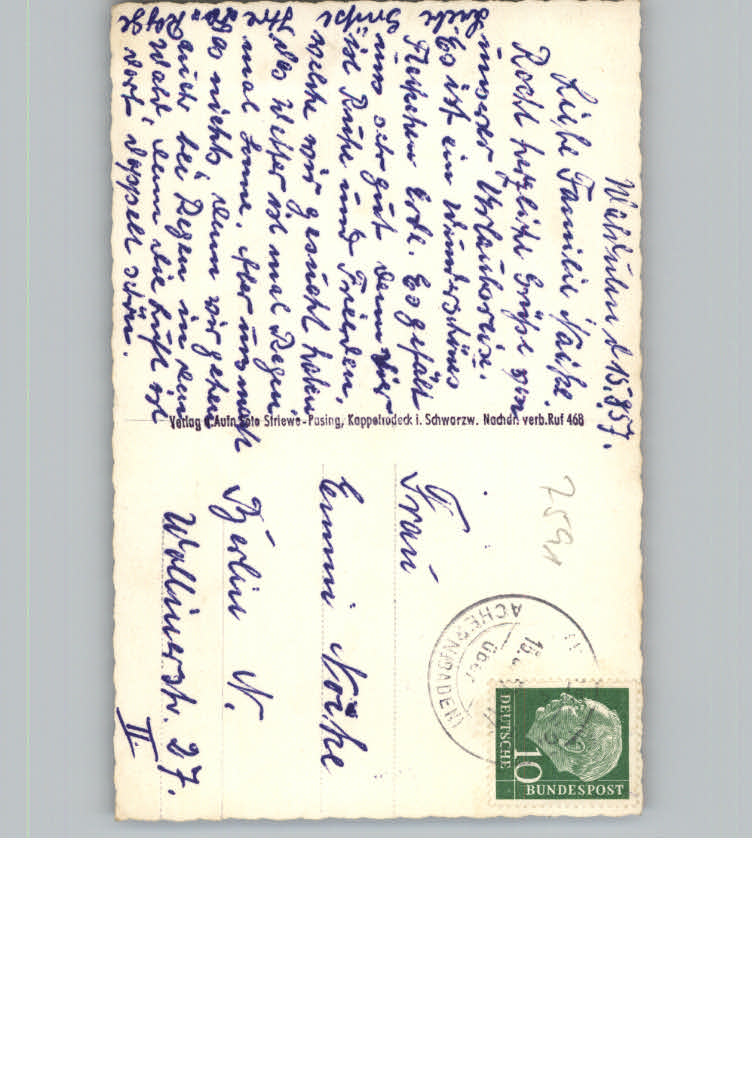 Waldulm d. 15.8.57.
Liebe Familie Noike.
Recht herzliche Grüße von
unserer Urlaubsreise.
Es ist ein wunderschönes
Fleckchen Erde. Es gefällt
uns sehr gut denn hier
ist Ruhe und Frieden,
welche wir gesucht haben.
Das Wetter ist mal Regen
mal Sonne. Aber uns macht
es nichts denn wir gehen
auch bei Regen in den
Wald denn die Luft ist
dort doppelt schön.
Liebe
Grüße
Ihre
Verlag u. Aufn. Foto Striewe-Pasing, Kappelrodeck i. Schwarzw. Nachdr. verb. Ruf 468
Frau
Emmi Noike
Berlin N.
Wollinerstr. 27.
II.
7591
ACHERN (BADEN)
über
15.
DEUTSCHE
BUNDESPOST
10